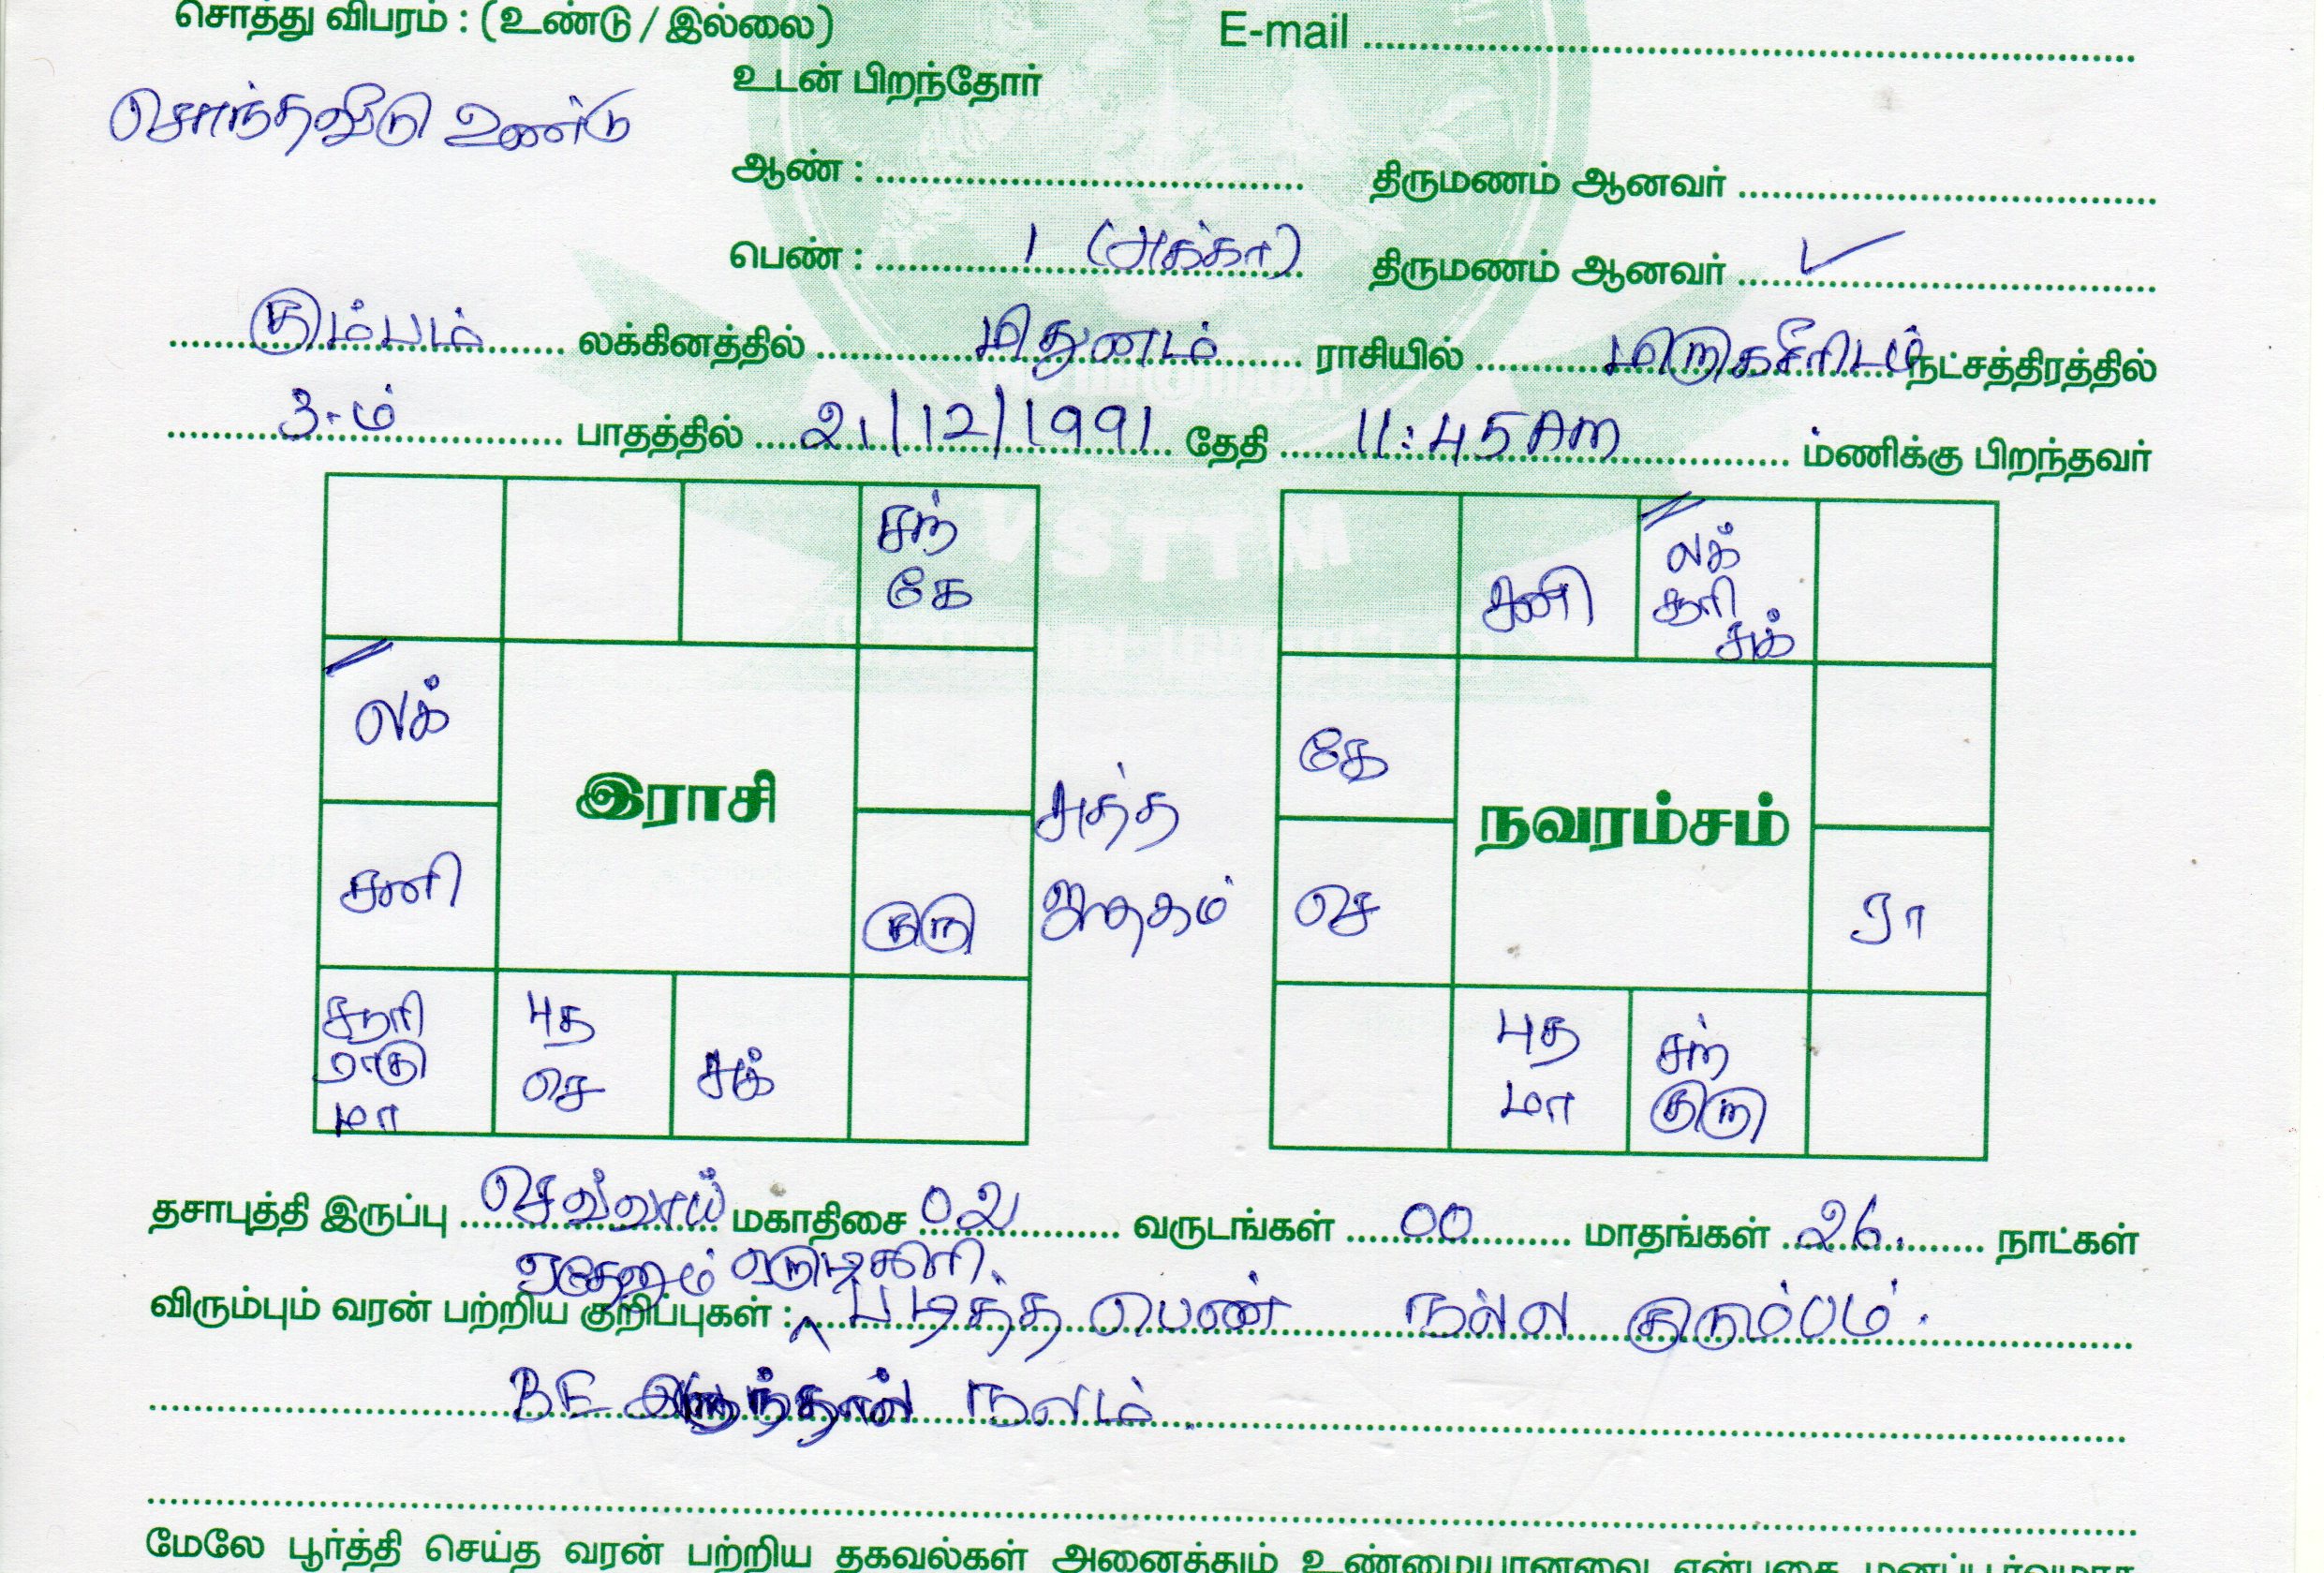 சொத்து விபரம் : (உண்டு / இல்லை) E-mail
உடன் பிறந்தோர்
சொந்தவீடு உண்டு
ஆண் : திருமணம் ஆனவர்
பெண் : 1 (அக்கா) திருமணம் ஆனவர் ✓
கும்பம் லக்கினத்தில் மிதுனம் ராசியில் மிறுகசீரிடம் நட்சத்திரத்தில்
3-ம் பாதத்தில் 21/12/1991 தேதி 11:45 AM மணிக்கு பிறந்தவர்
VSTTM
சந்
கே
லக்
இராசி
சனி
குரு
சூரி
ராகு
மா
புத
செ
சுக்
சுத்த
ஜாதகம்
சனி
லக்
சூரி
சுக்
கே
நவரம்சம்
செ
ரா
புத
மா
சந்
குரு
தசாபுத்தி இருப்பு செவ்வாய் மகாதிசை 02 வருடங்கள் 00 மாதங்கள் 26 நாட்கள்
ஏதேனும் ஒரு டிகிரி
விரும்பும் வரன் பற்றிய குறிப்புகள் : படித்த பெண் நல்ல குடும்பம்.
BE இருந்தால் நலம்.
மேலே பூர்த்தி செய்த வரன் பற்றிய தகவல்கள் அனைத்தும் உண்மையானவை என்பதை மனப்பூர்வமாக